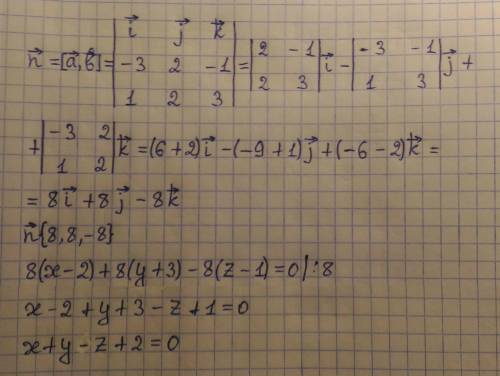 n⃗ = [a⃗, b⃗] = | i⃗ j⃗ k⃗ ; -3 2 -1 ; 1 2 3 | = | 2 -1 ; 2 3 | i⃗ - | -3 -1 ; 1 3 | j⃗ +
+ | -3 2 ; 1 2 | k⃗ = (6+2)i⃗ - (-9+1)j⃗ + (-6-2)k⃗ =
= 8i⃗ + 8j⃗ - 8k⃗
n⃗{8,8,-8}
8(x-2)+8(y+3)-8(z-1)=0 |:8
x-2+y+3-z+1=0
x+y-z+2=0